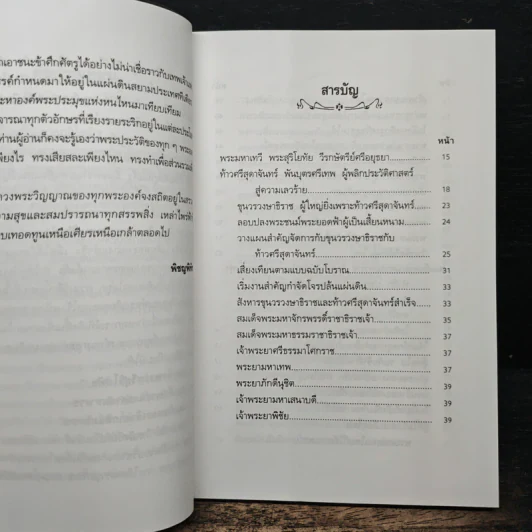 าเอาชนะข้าศึกศัตรูได้อย่างไม่น่าเชื่อราวกับเทพเจ้าแ
รค์กำหนดมาให้อยู่ในแผ่นดินสยามประเทศที่
ะหาองค์พระประมุขแห่งหนไหนมาเทียบเทียม
จารณาทุกตัวอักษรที่เรียงรายระริกอยู่ใน
ท่านผู้อ่านก็คงจะรู้เองว่าพระประวัติของทุก ๆ พระ
พียงไร ทรงเสียสละเพียงไหน ทรงทำเพื่อส่วน
วงพระวิญญาณของทุกพระองค์จงสถิตอยู่ใน
วามสุขและสมปรารถนาทุกสรรพสิ่ง เหล่าไพร่
ขเทอดทูนเหนือเศียรเหนือเกล้าตลอดไป
พิชญ
สารบัญ
หน้า
พระมหาเทวี พระสุริโยทัย วีรกษัตรีย์ศรีอยุธยา 15
ท้าวศรีสุดาจันทร์ พันบุตรศรีเทพ ผู้พลิกประวัติศาสตร์
สู่ความเลวร้าย 18
ขุนวรวงษาธิราช ผู้ใหญ่ยิ่งเพราะท้าวศรีสุดาจันทร์ 23
ลอบปลงพระชนม์พระยอดฟ้าผู้เป็นเสี้ยนหนาม 24
วางแผนสำคัญจัดการกับขุนวรวงษาธิราชกับ
ท้าวศรีสุดาจันทร์ 25
เสี่ยงเทียนตามแบบฉบับโบราณ 31
เริ่มงานสำคัญกำจัดโจรปล้นแผ่นดิน 33
สังหารขุนวรวงษาธิราชและท้าวศรีสุดาจันทร์สำเร็จ 33
สมเด็จพระมหาจักรพรรดิ์ราชาธิราชเจ้า 35
สมเด็จพระมหาธรรมราชาธิราชเจ้า 37
เจ้าพระยาศรีธรรมาโศกราช 37
พระยามหาเทพ 37
พระยาภักดีนุชิต 39
เจ้าพระยามหาเสนาบดี 39
เจ้าพระยาพิชัย 39